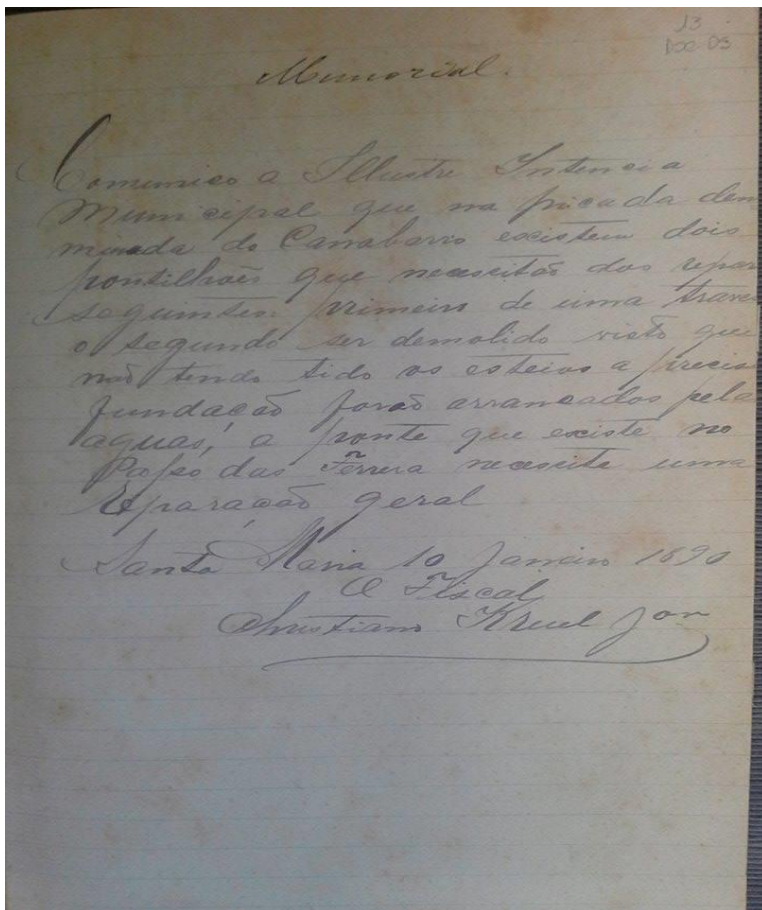 13
Doc 03
Memorial.
Comunico a Illustre Intencia
Municipal que na picada den
minada do Canabarro existem dois
pontilhões que necesitão dos repar
seguintes: primeiro de uma trave
o segundo ser demolido visto que
não tendo tido os esteios a precis
fundação forão arrancados pela
aguas, a ponte que existe no
Passo das Ferrera necesite uma
reparação geral
Santa Maria 10 Janeiro 1890
O Fiscal
Christiano Kruel Jor